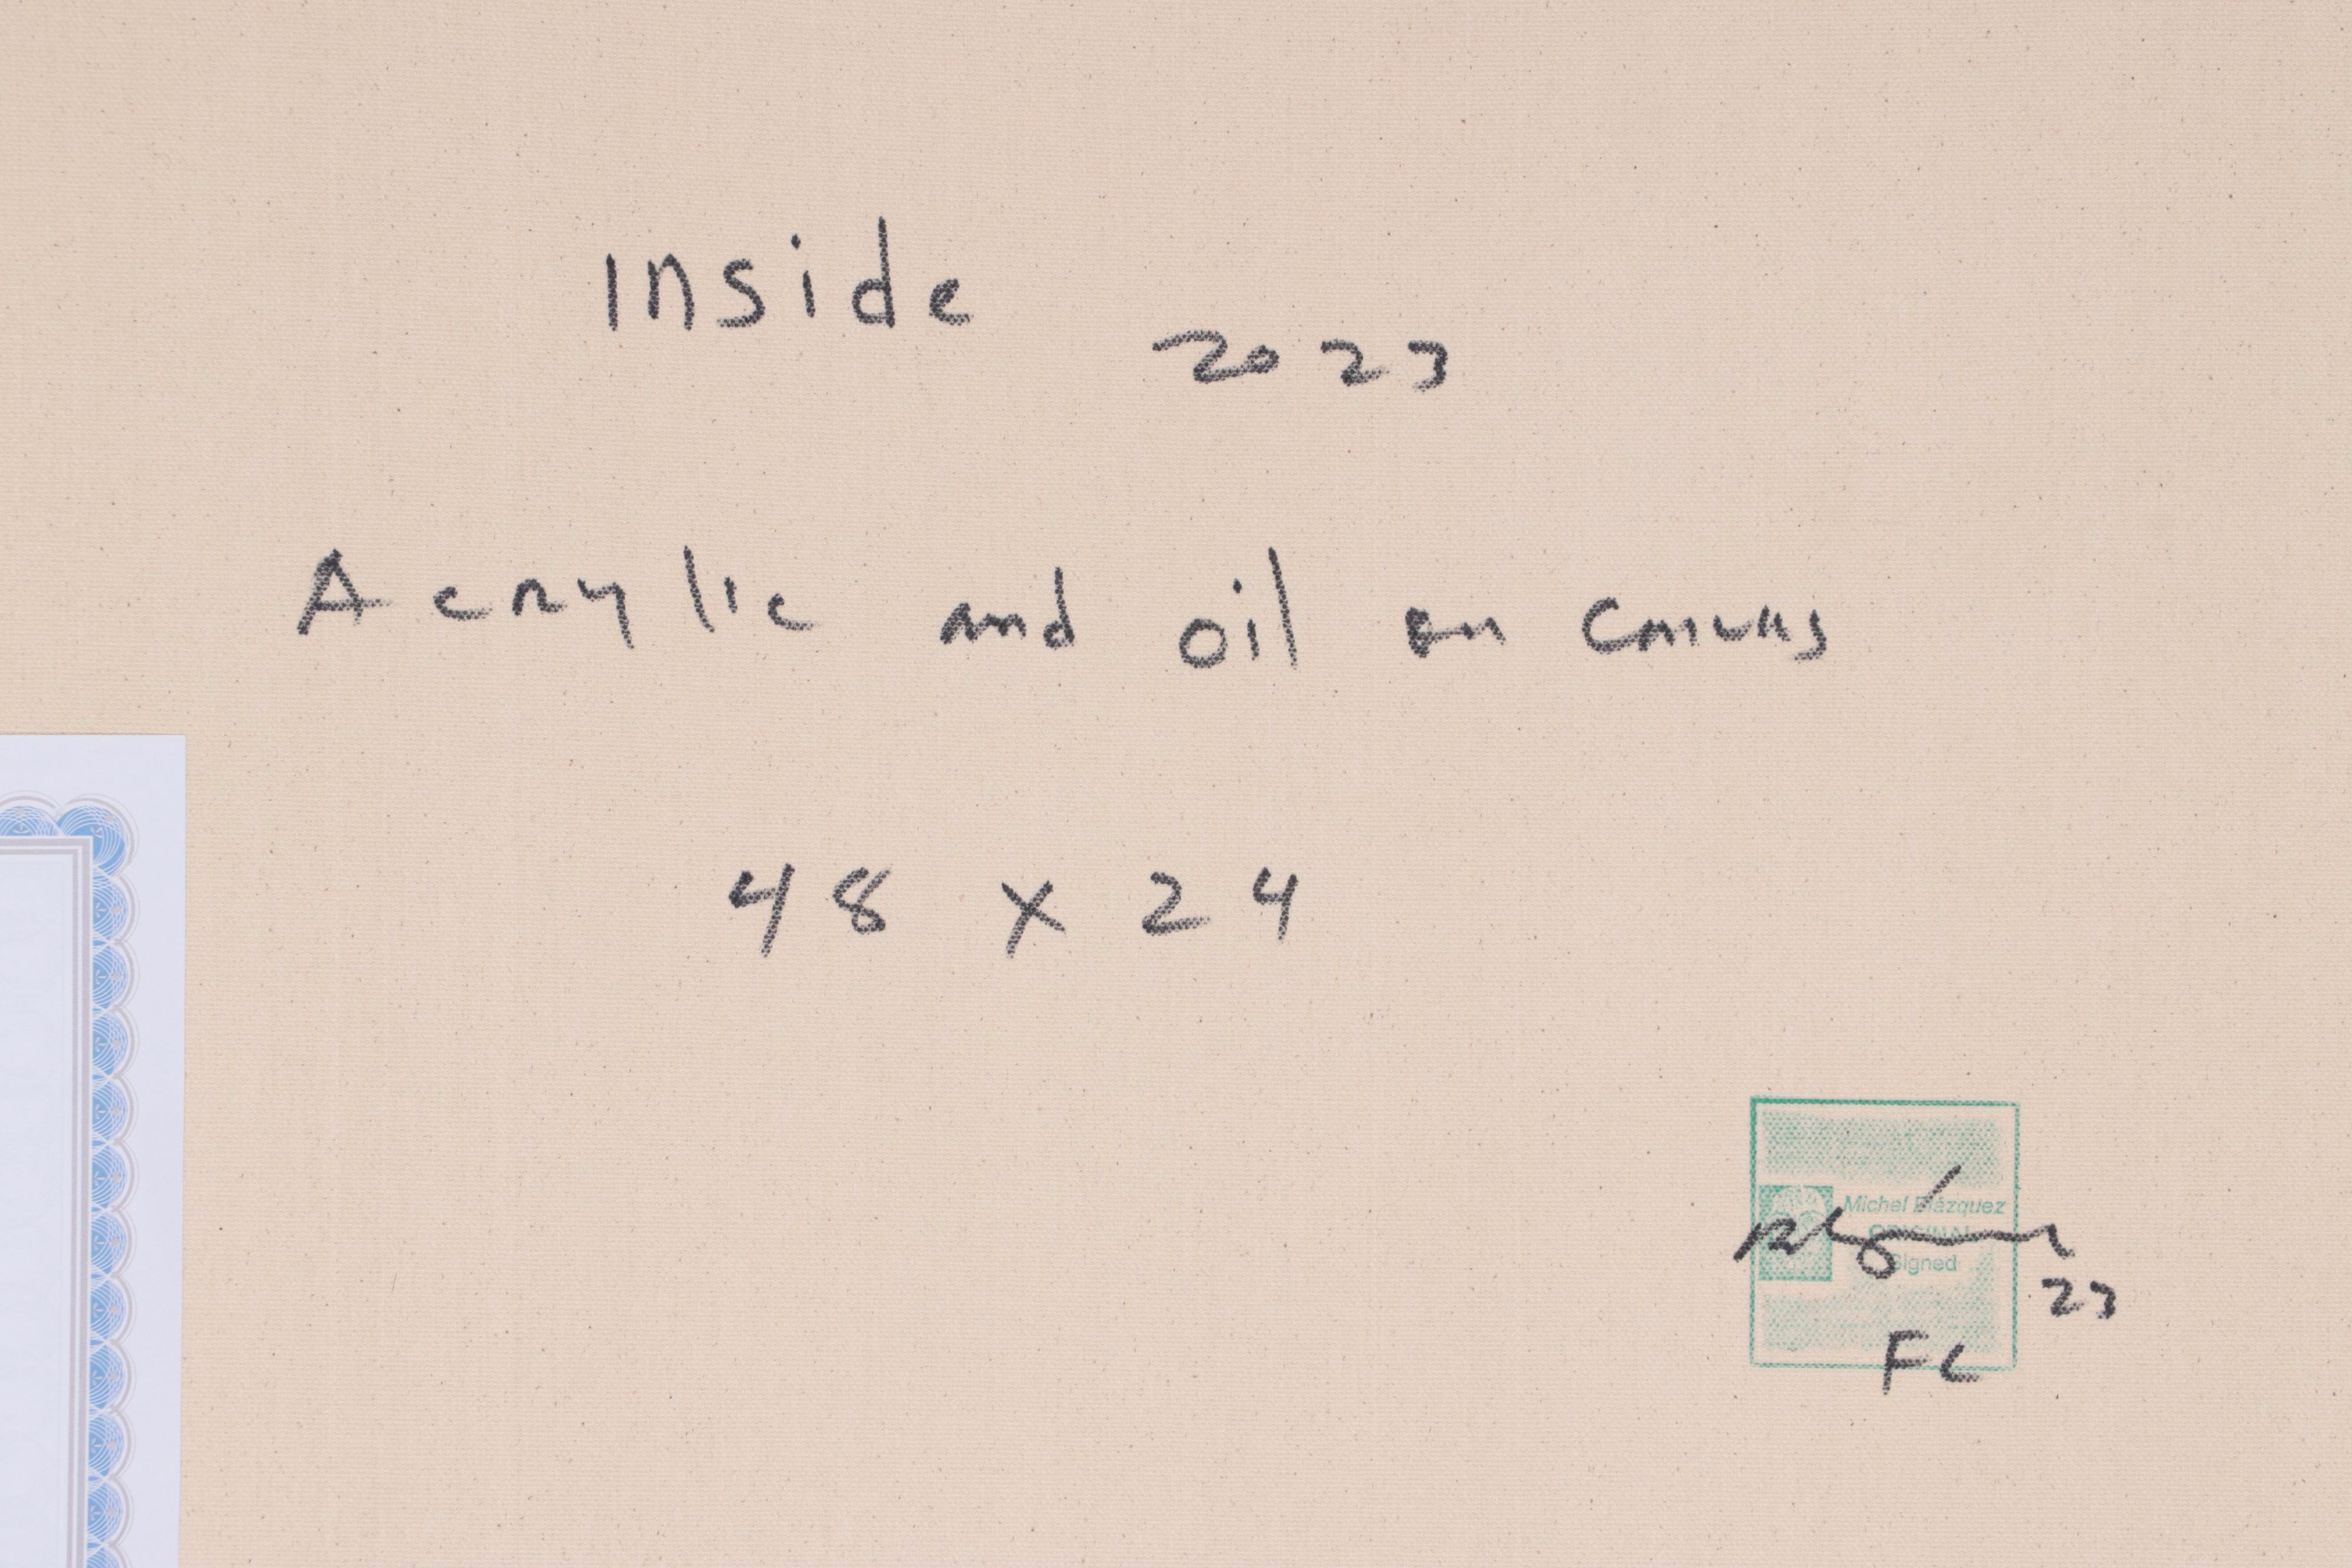 Inside
2023
Acrylic and oil on Canvas
48 x 24
Michel Blázquez
ORIGINAL
signed
23
FC